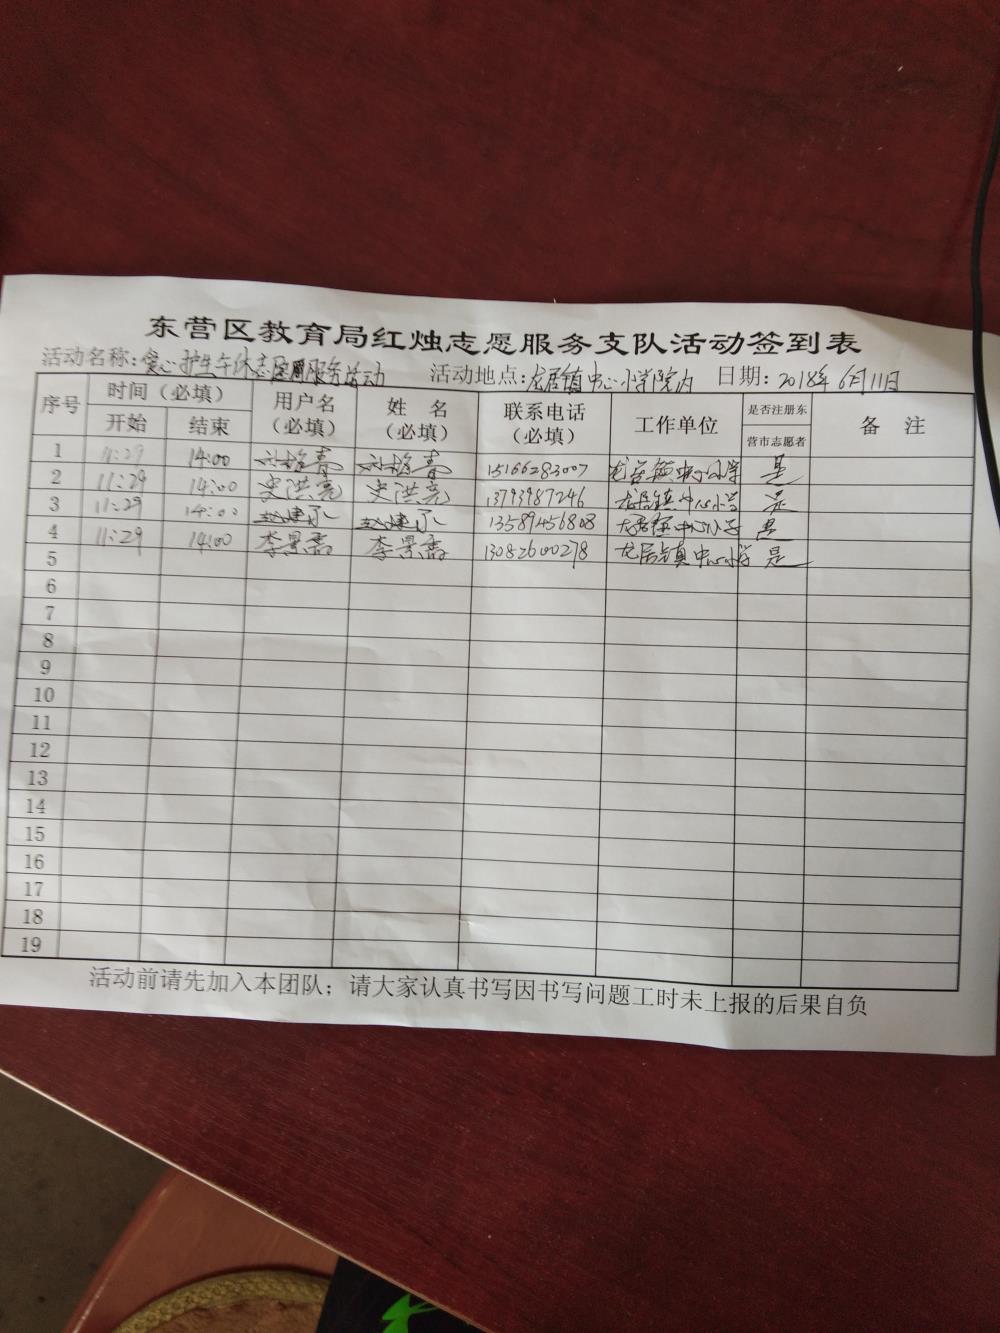 东营区教育局红烛志愿服务支队活动签到表
活动名称：爱心护生午休志愿服务活动 活动地点：龙居镇中心小学院内 日期：2018年6月11日
序号 时间（必填） 用户名（必填） 姓 名（必填） 联系电话（必填） 工作单位 是否注册东营市志愿者 备 注
开始 结束
1 11:29 14:00 15166283007 龙居镇中心小学 是
2 11:29 14:00 史洪亮 史洪亮 13793987246 龙居镇中心小学 是
3 11:29 14:00 13589456808 龙居镇中心小学 是
4 11:29 14:00 李景 李景 13082600278 龙居镇中心小学 是
5
6
7
8
9
10
11
12
13
14
15
16
17
18
19
活动前请先加入本团队；请大家认真书写因书写问题工时未上报的后果自负